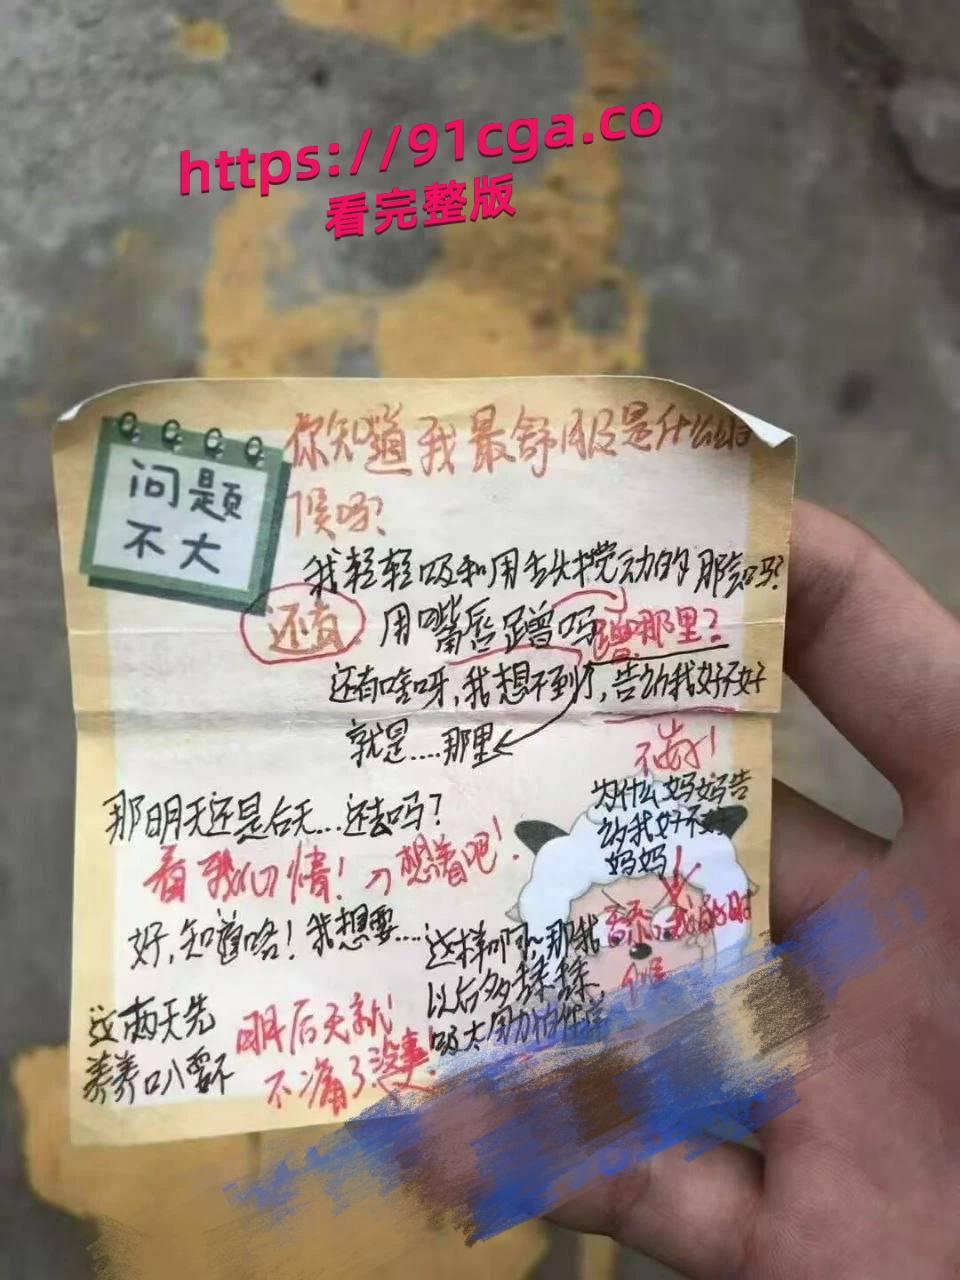 https://91cga.co
看完整版
问题
不大
你知道我最舒服是什么时
候吗?
我轻轻吸和用舌头搅动的那会吗?
还有
用嘴唇蹭吗 蹭那里?
还有啥呀,我想不到了,告诉我好不好
就是....那里
不告!
为什么妈妈告
诉我好不好
妈妈
那明天还是后天...还去吗?
看我心情!
想着吧!
好,知道咯!我想要....
这样啊
那我
以后多
这两天先
养养
明后天就
不痛了没事!